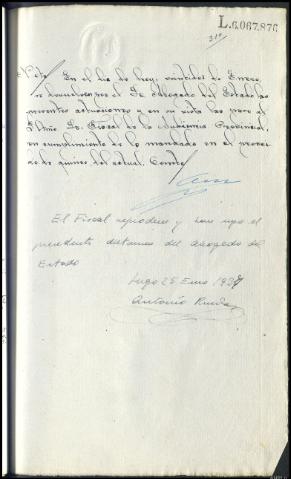 L.6.067.876
Nota. En el dia de hoy, veintidos de Enero,
se devuelven por el Sr. Abogado del Estado las
presentes actuaciones y en su vista las paso al
Iltmo Sr. Fiscal de la Audiencia Provincial,
en cumplimiento de lo mandado en el provei-
do de quince del actual. Conste
El Fiscal reproduce y hace suyo el
precedente dictamen del Abogado del
Estado
Lugo 25 Enero 1937
Antonio Rueda